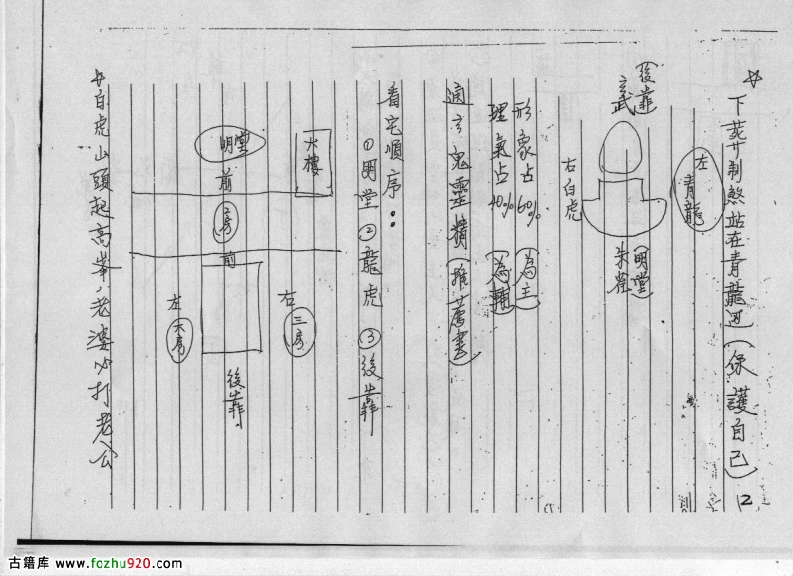 ☆下葬制煞站在青龍邊(保護自己)
2
左青龍
後靠
玄武
明堂
朱雀
右白虎
形象占60%(為主)
理氣占40%(為輔)
通玄鬼靈精(推薦書)
看宅順序：
①明堂②龍虎③後靠
大樓
明堂
前
二房
前
右
三房
左
大房
後靠
☆白虎山頭起高峯，老婆必打老公
古籍库 www.fozhu920.com